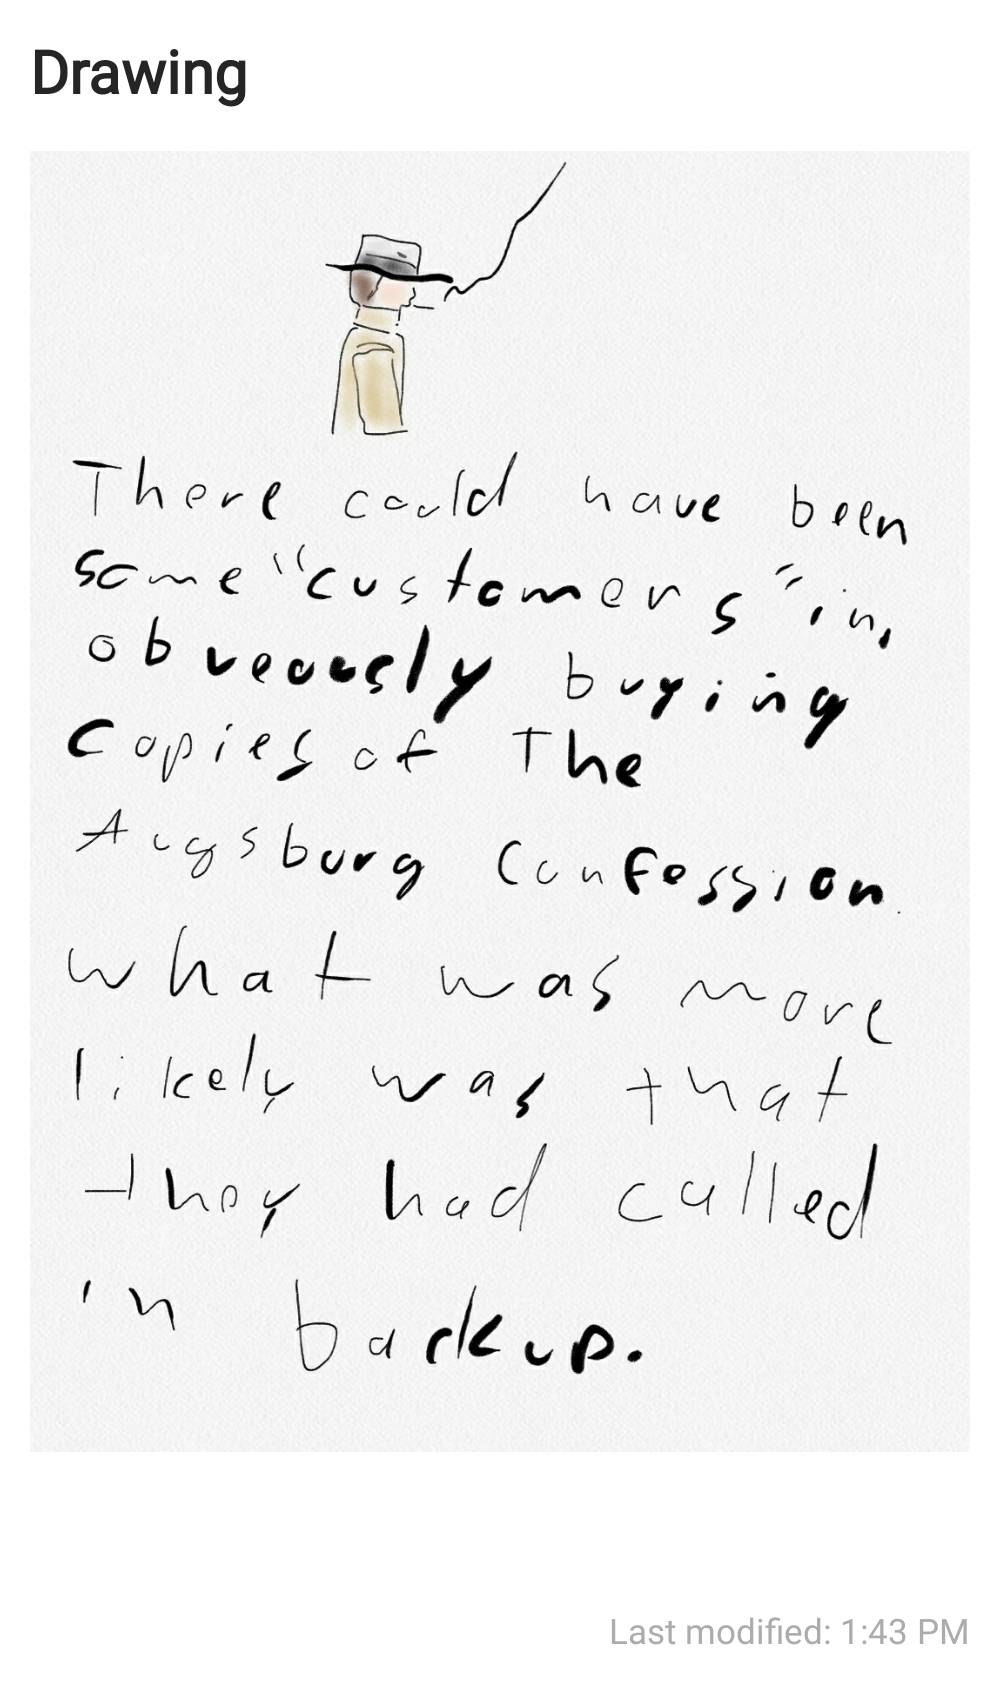 Drawing
There could have been
some "customers" in,
obveously buying
copies of The
Augsburg Confession.
what was more
likely was that
they had called
in backup.
Last modified: 1:43 PM